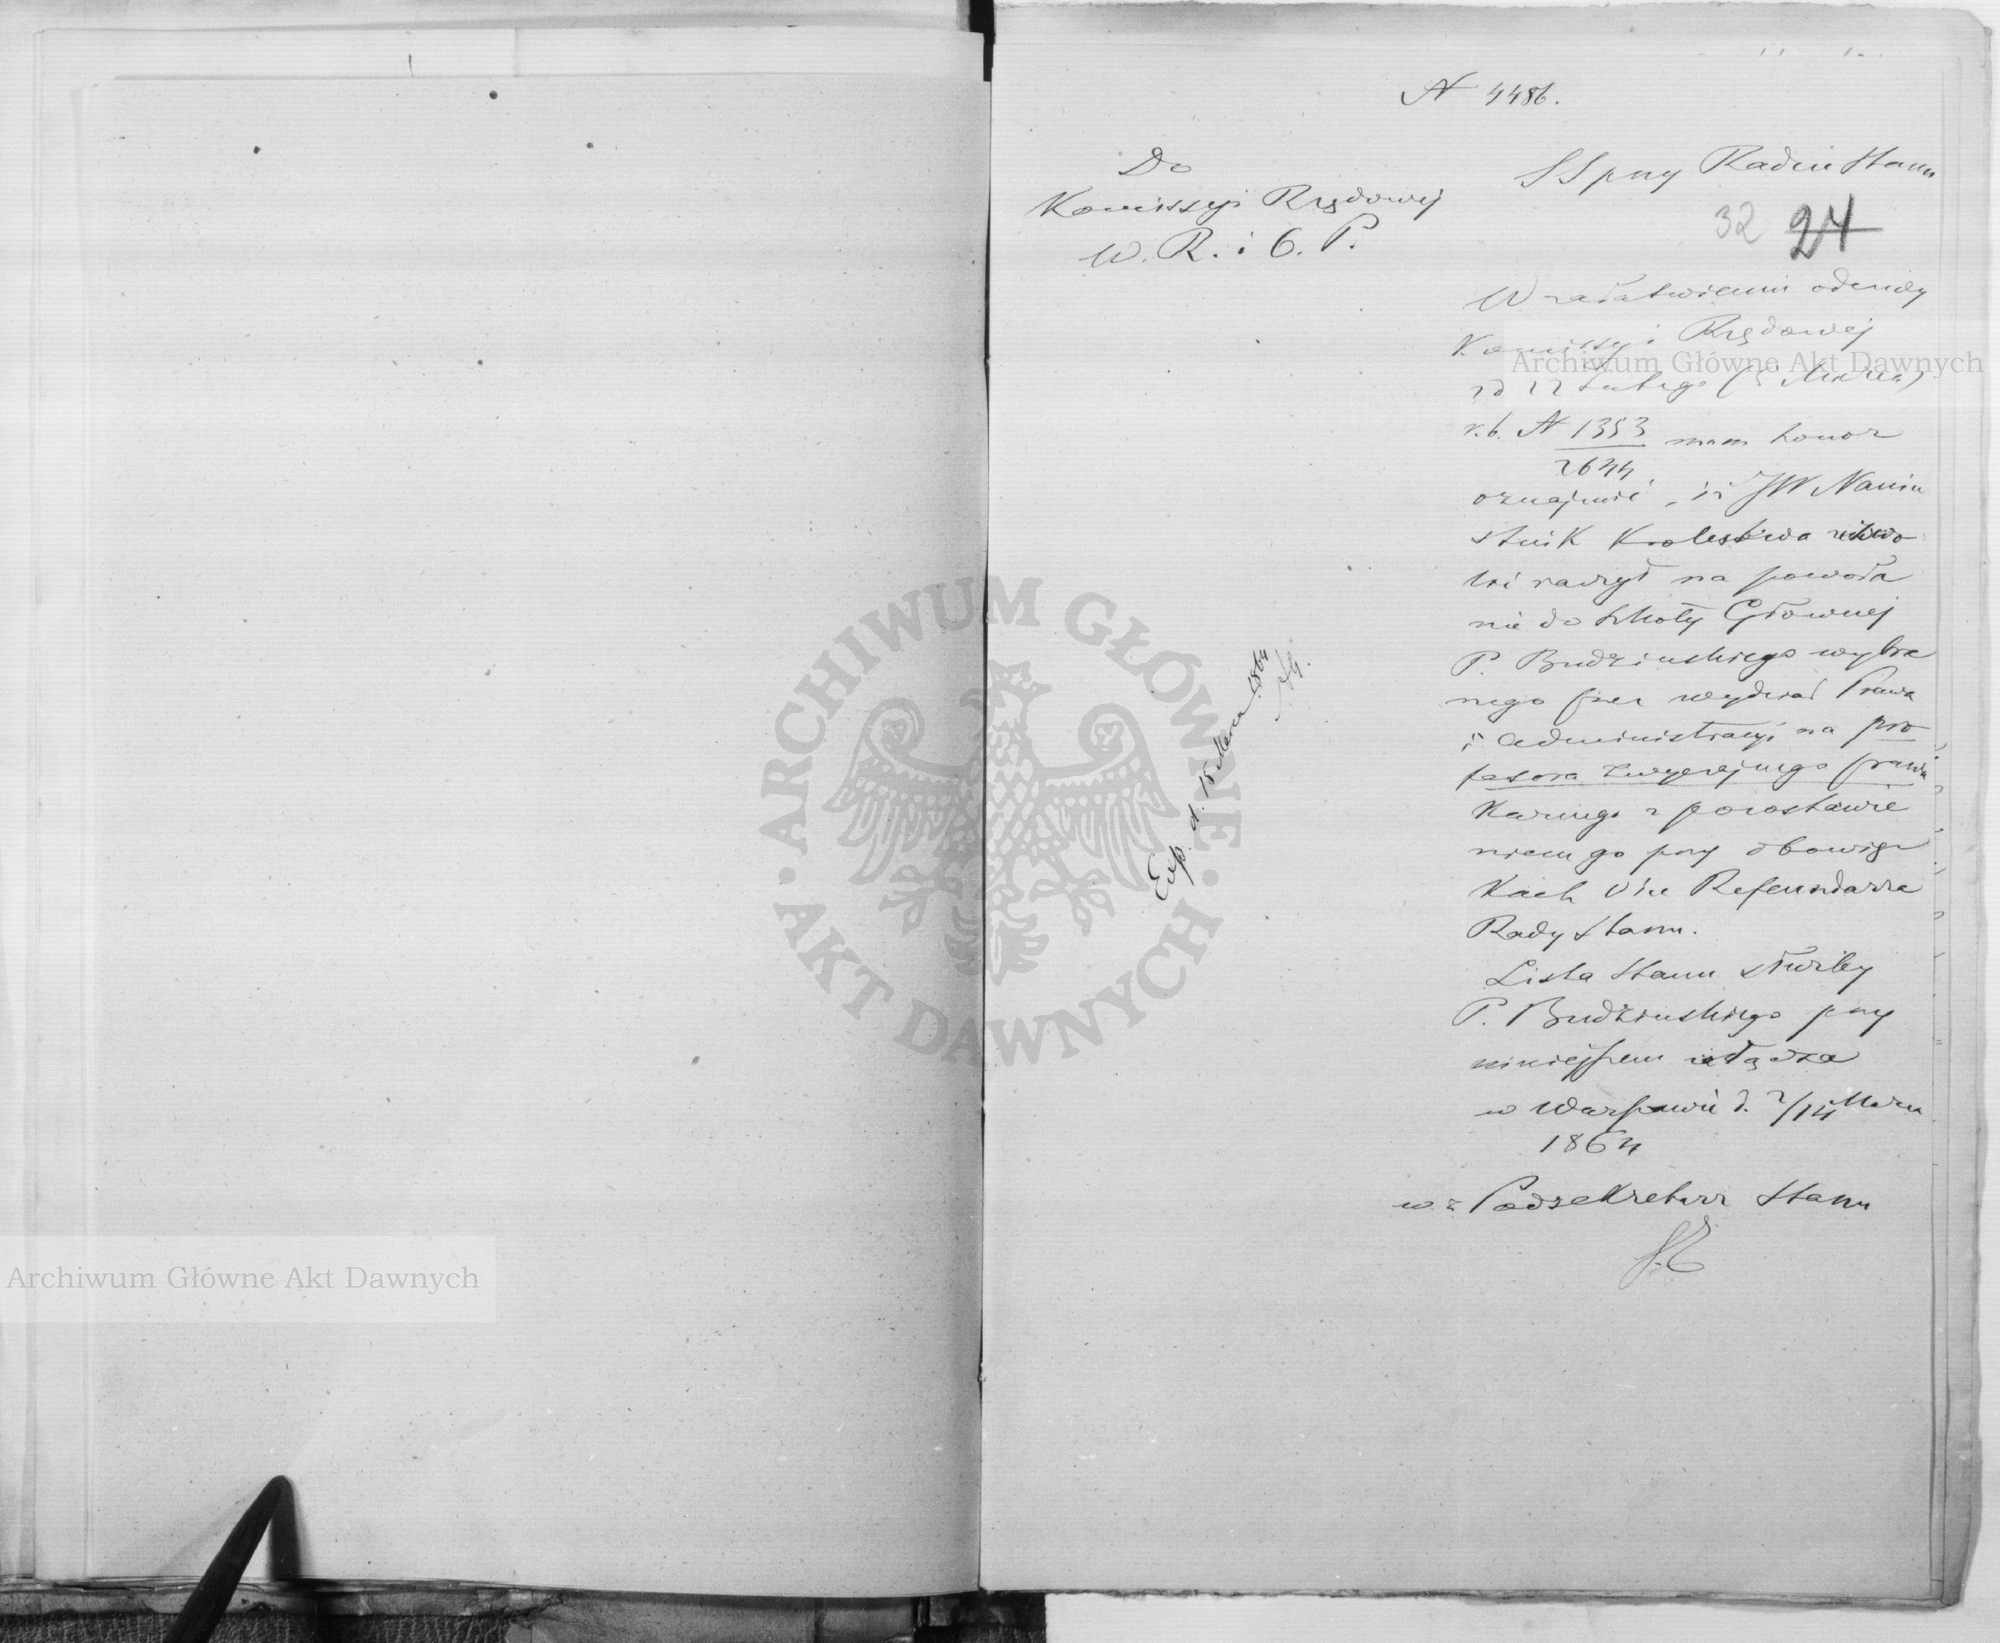 N 4486.
Do
Komissyi Rządowej
W. R. i O. P.
SS przy Radzie Stanu
32 24
W załatwieniu odezwy
Komissyi Rządowej
Archiwum Główne Akt Dawnych
Lutego (5 Marca)
r.b. N 1353/2644 mam honor
oznajmić, iż JW Namie
stnik Królestwa zezwo
lić raczył na powoła
nie do Szkoły Głównej
P. Budzińskiego wybra
nego przez wydział Prawa
i administracyi na pro
fesora zwyczajnego prawa
Karnego z pozostawie
niem go przy obowiąz
kach Vice Referendarza
Rady Stanu.
Lista Stanu służby
P. Budzińskiego przy
niniejszem załącza
w Warszawie d. 2/14 Marca
1864
w z Podsekretarz Stanu
Exp. d. 15 Marca 1864
ARCHIWUM GŁÓWNE · AKT DAWNYCH ·
Archiwum Główne Akt Dawnych